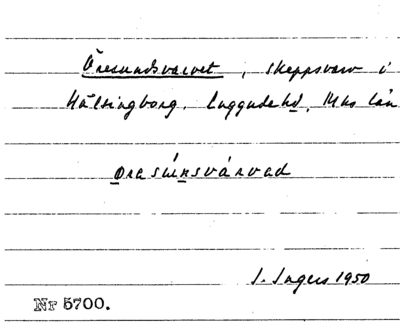 Öresundsvarvet, skeppsvarv i
Hälsingborg, Luggude hd, Mus län
øresúnsvárvad
S. Ingers 1950
Nr 5700.